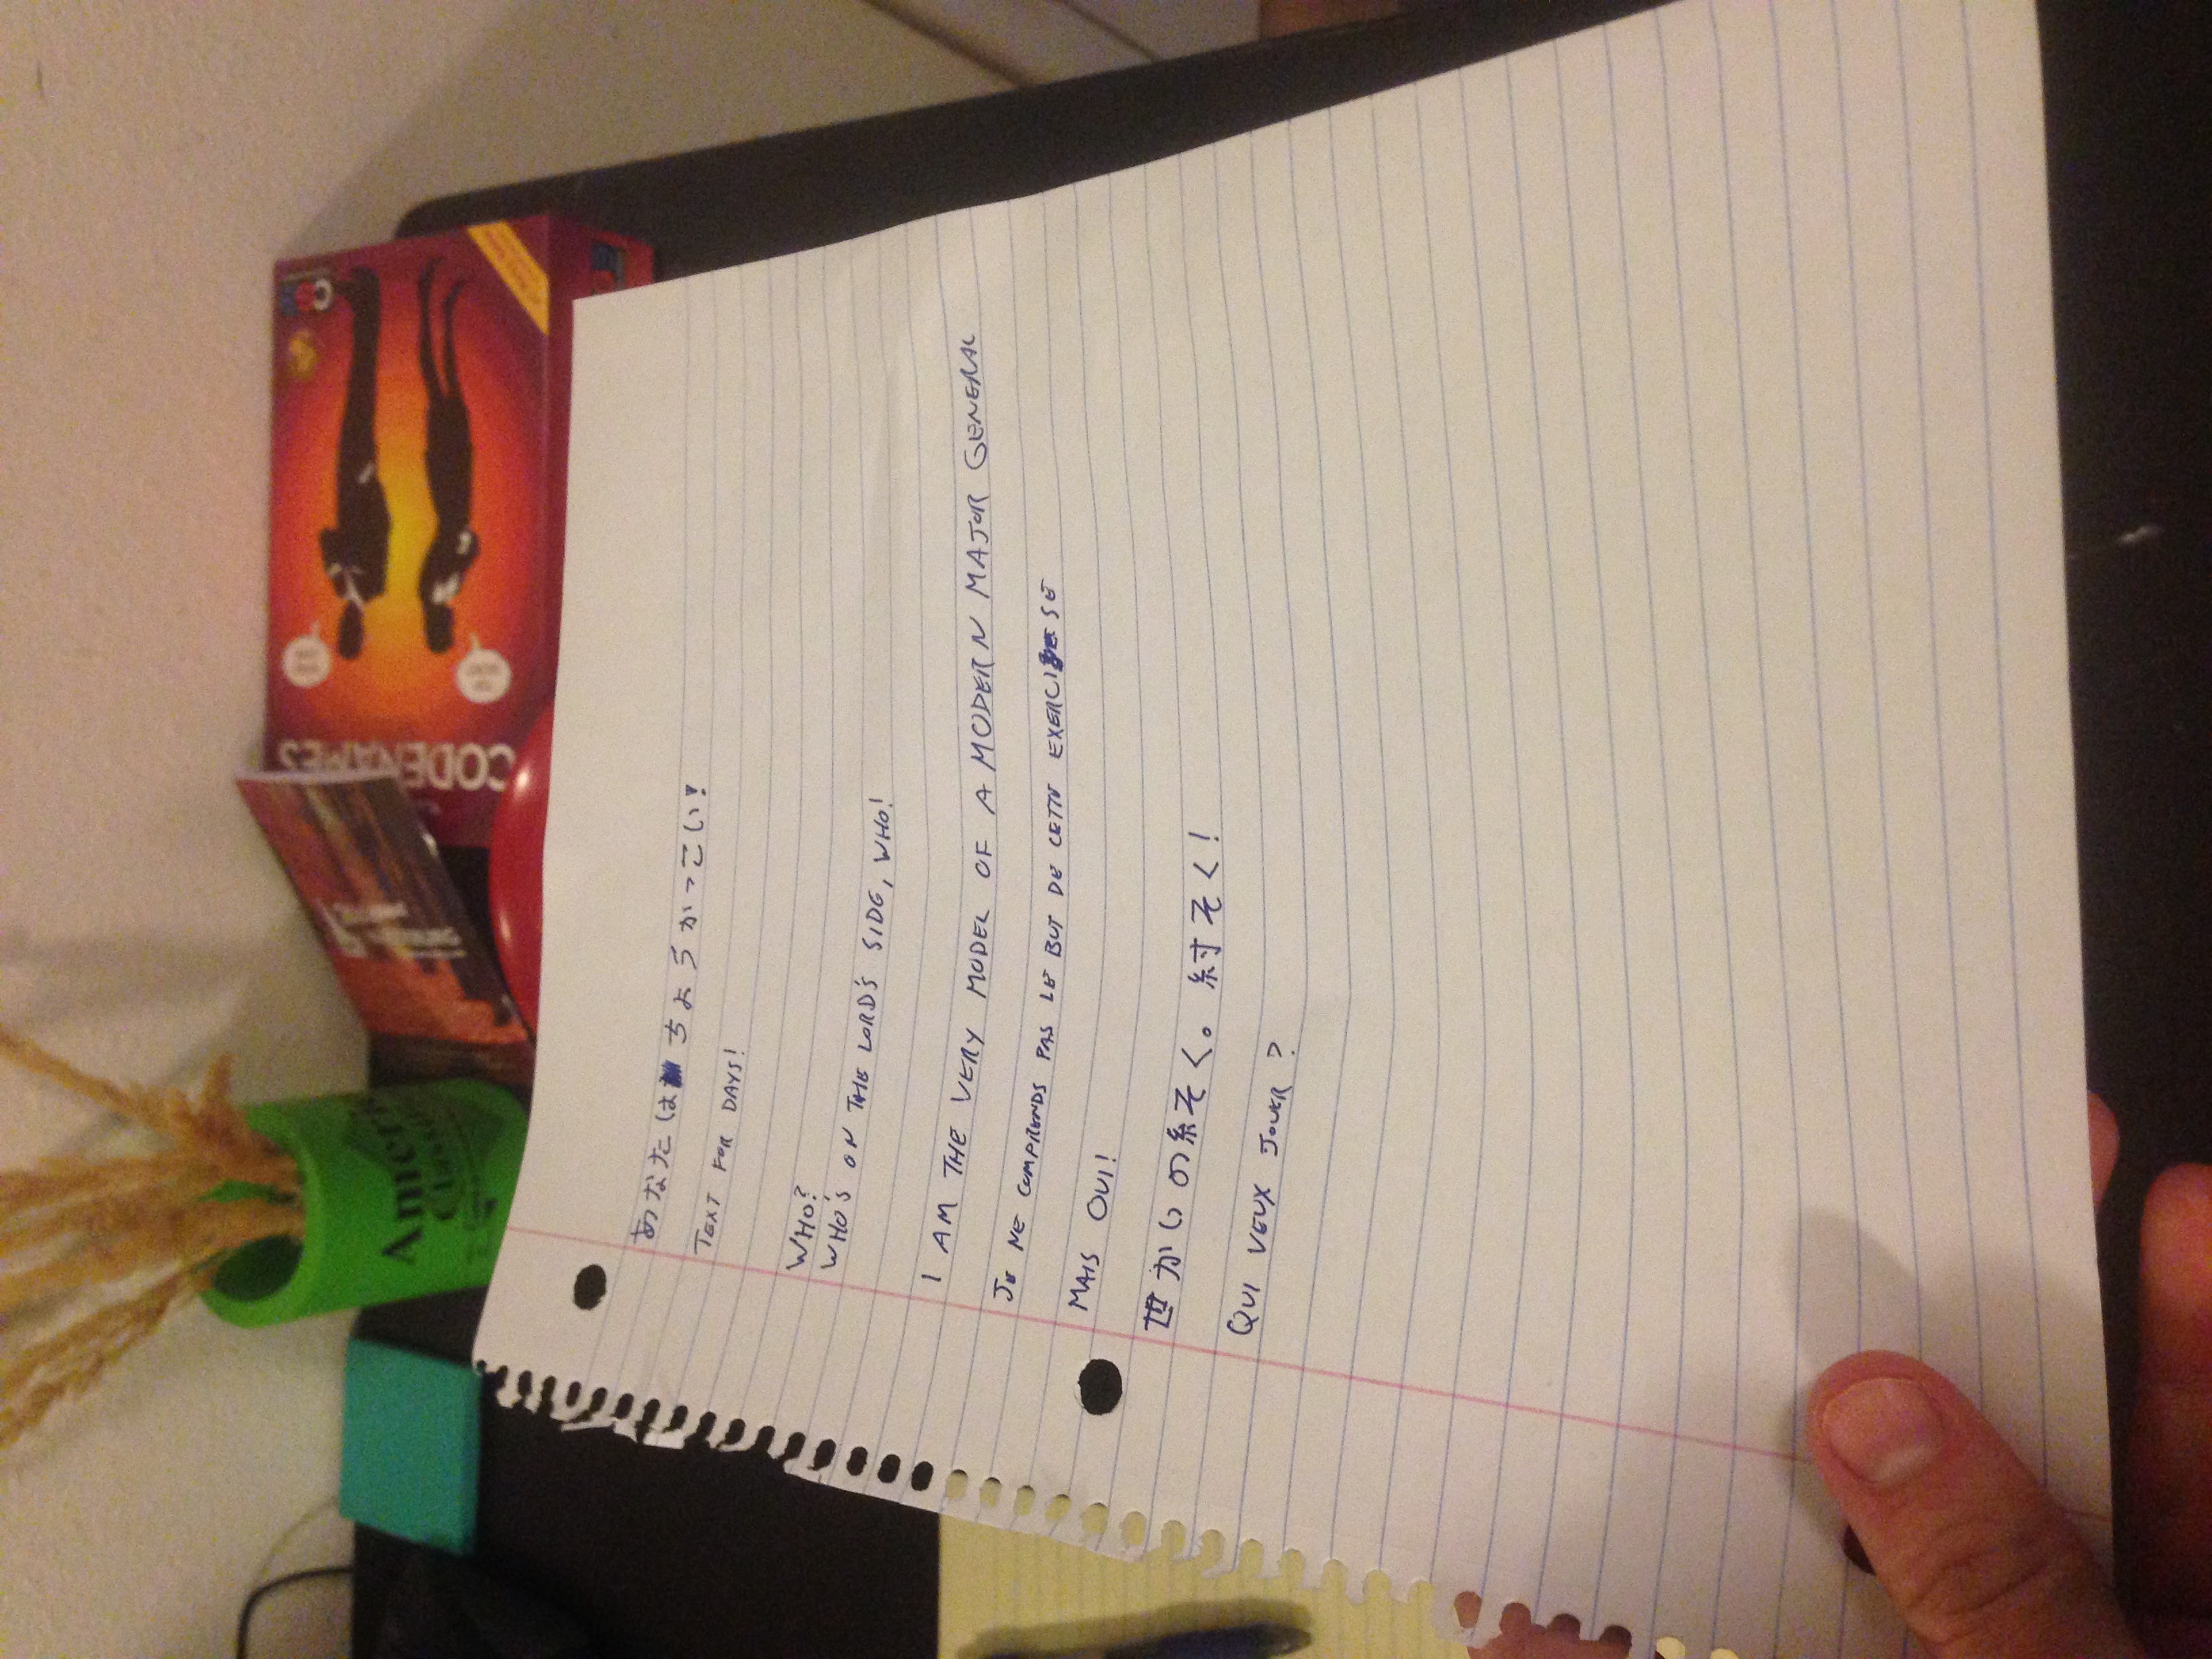 Ameri
Class
CODENAMES
あなたは ちょうかっこい!
TEXT FOR DAYS!
WHO?
WHO'S ON THE LORD'S SIDE, WHO!
I AM THE VERY MODEL OF A MODERN MAJOR GENERAL
JE NE COMPRENDS PAS LE BUT DE CETTE EXERCISE
MAIS OUI!
世かいの糸そく。 紂そく!
QUI VEUX JOUER ?